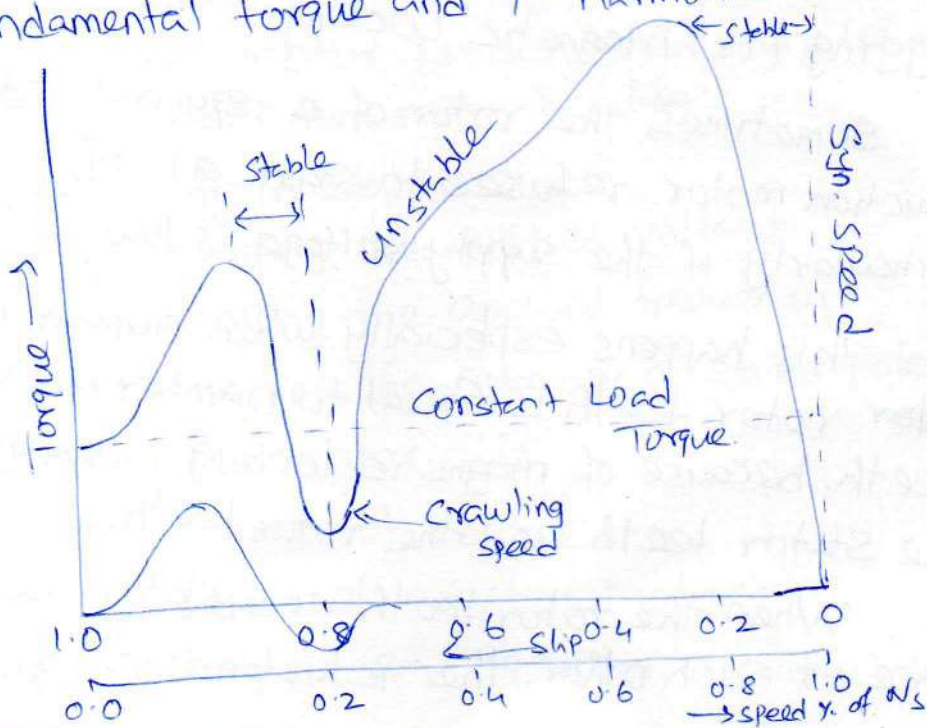 ndamental torque and 7
stable
stable
Unstable
Syn. Speed
Torque
Constant Load
Torque.
Crawling
speed
1.0 0.8 0.6 Slip 0.4 0.2 0
0.0 0.2 0.4 0.6 0.8 1.0
speed % of Ns